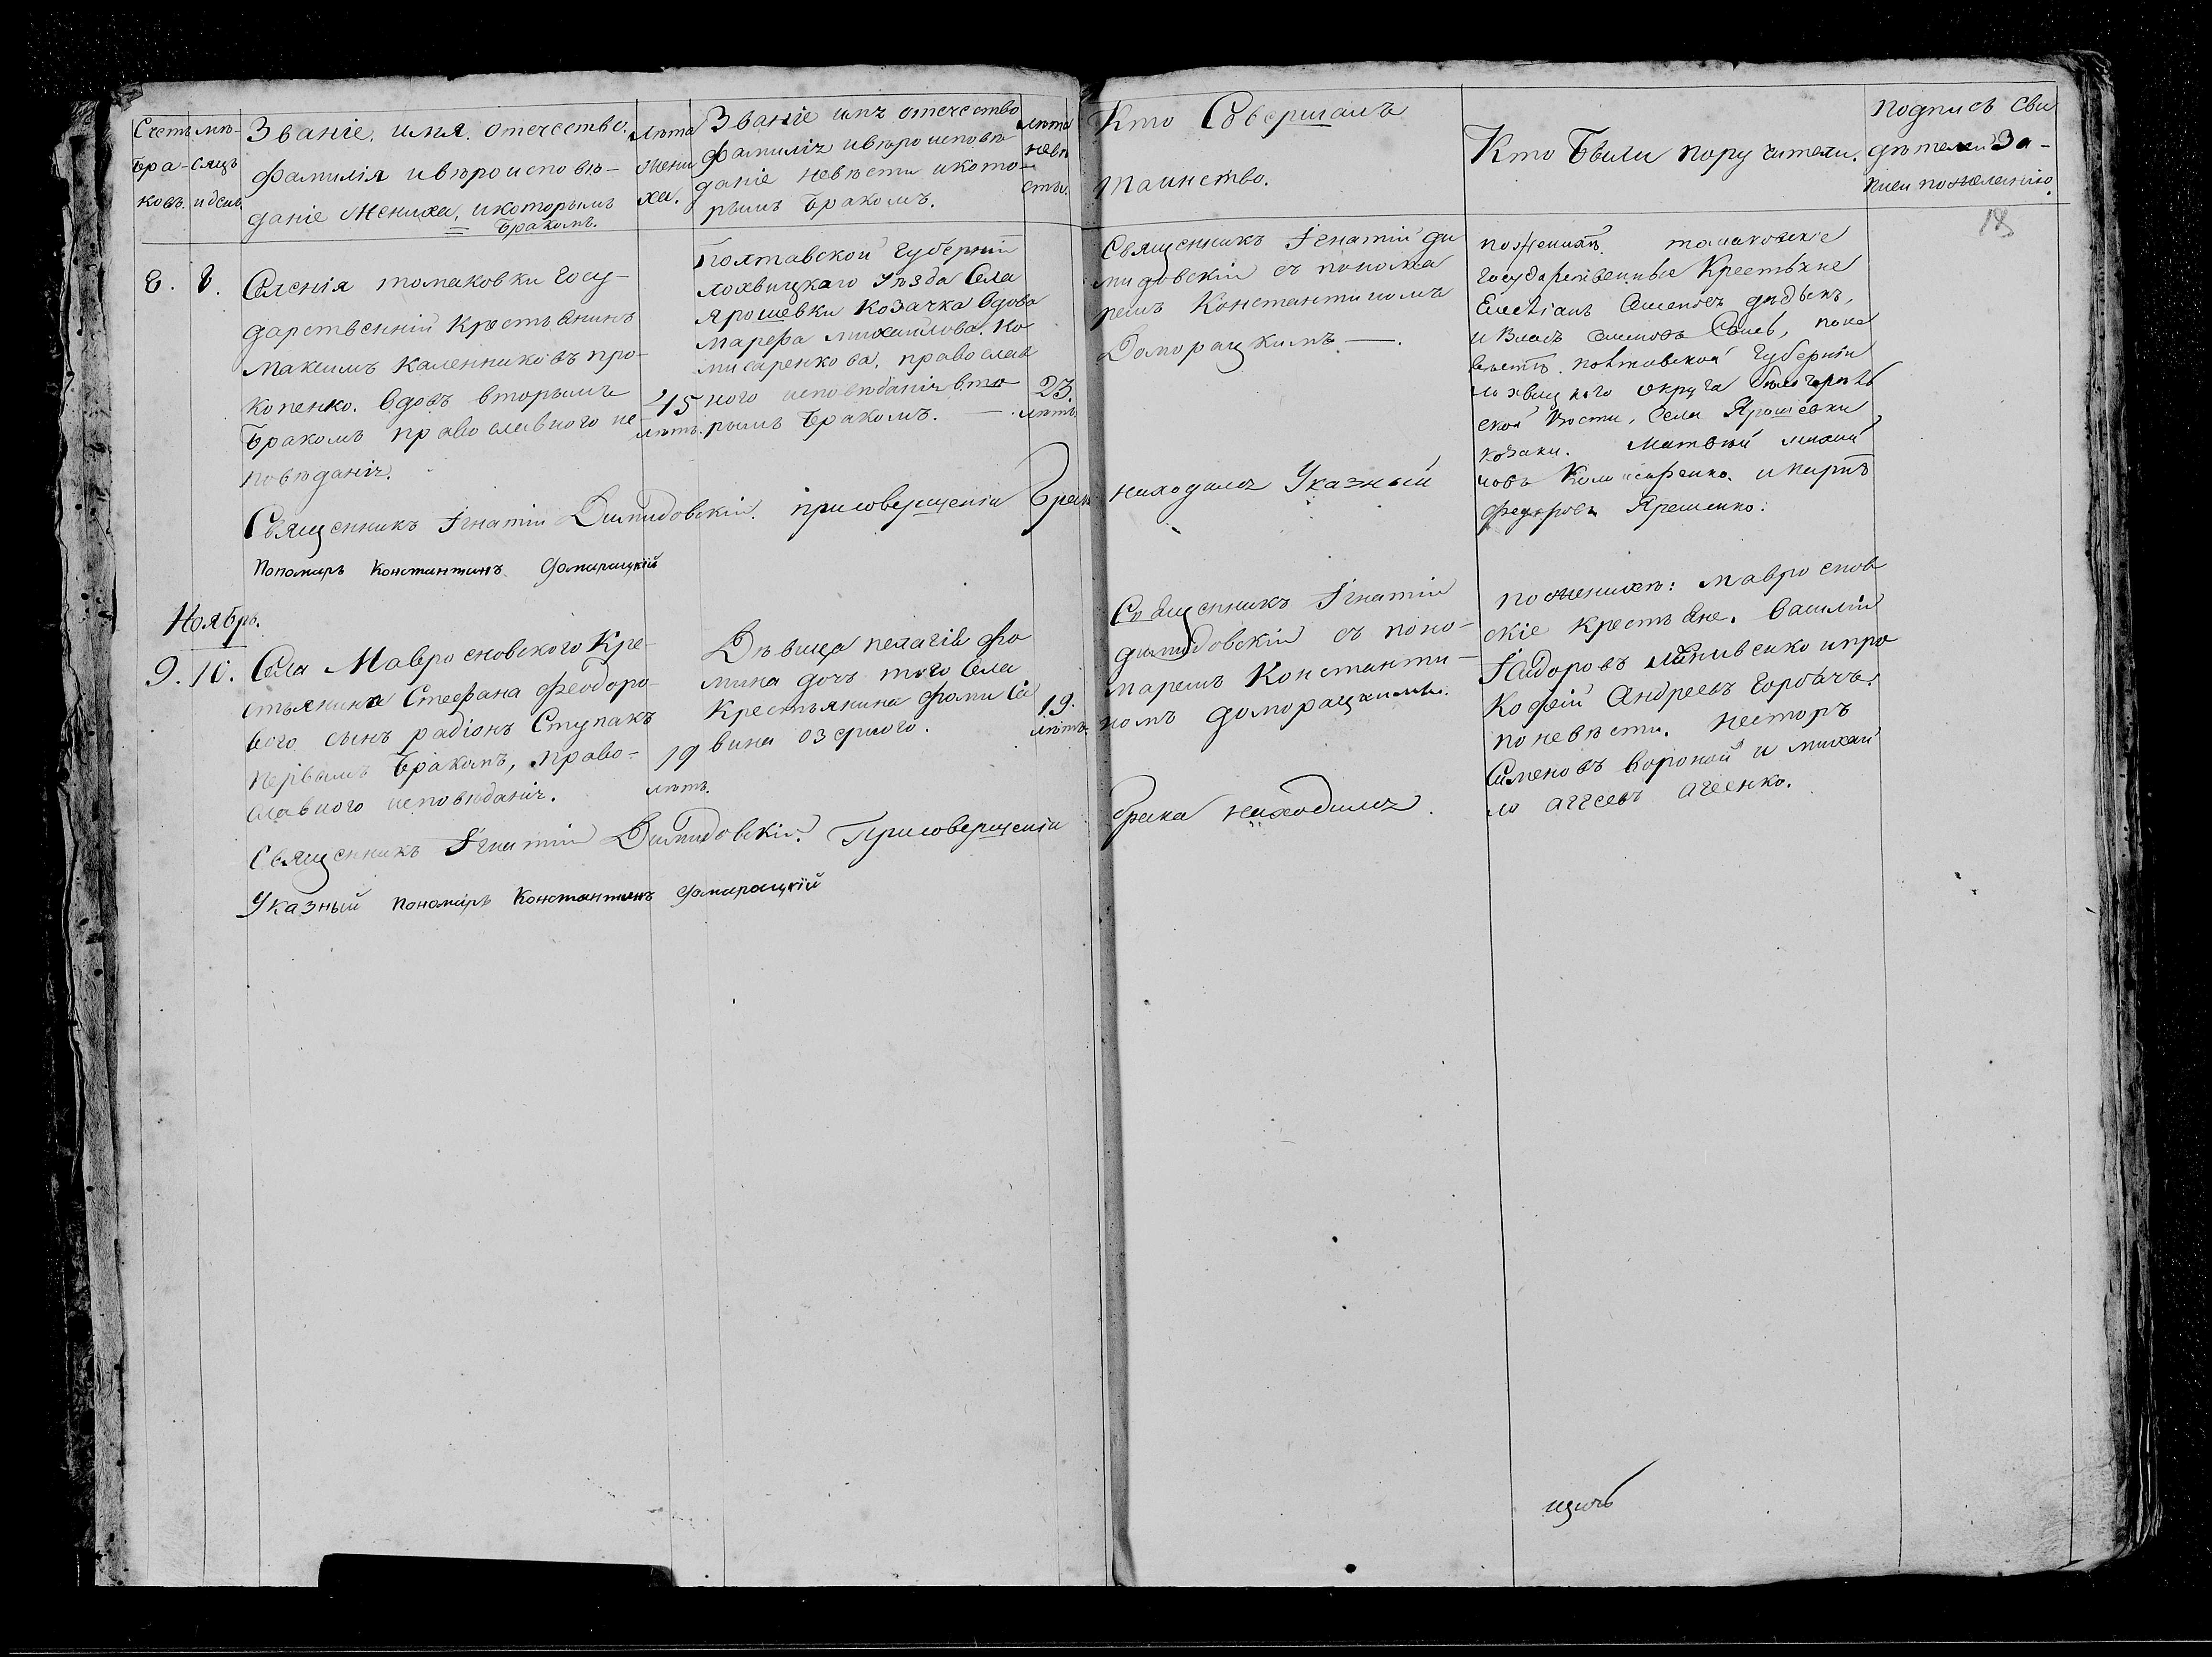 Счетъ
бра-
ковъ.
мѣ-
сяцъ
и день
Званіе, имя, отечество.
фамилія и вѣроисповѣ-
даніе жениха, и которымъ
бракомъ.
лѣта
жени
ха.
Званіе имя отечество
фамилія и вѣроисповѣ-
даніе невѣсти и кото-
рымъ бракомъ.
лѣта
невѣ
сты.
Кто Совершалъ
таинство.
Кто Были поручители.
подписъ сви
дѣтелей За-
писи по желанію.
18
8. 8.
Селенія томаковки госу-
дарственній крестьянинъ
максимъ Каленниковъ про-
копенко. вдовъ вторымъ
бракомъ православного ис
повѣданія.
45
лѣтъ.
Полтавской губерніи
лохвицкаго уѣзда Села
ярошевки козачка вдова
марфа михаилова. ко
мисаренкова, православ
ного исповѣданія вто
рымъ бракомъ. —
23.
лѣтъ
Священникъ Ігнатій ди
мидовскій съ понома
ремъ Константиномъ
Доморацкимъ —.
по женихѣ томаковскіе
государственные Крестьяне
Семеновъ дидыкъ,
и Власъ Саевъ, по не
вѣстѣ. полтавской губерніи
лохвицкого округа
ской волости, села Ярошевки
козаки. Матвѣй михаи
ловъ Комисаренко. и кирилъ
федоровъ Ярешенко.
Священникъ Ігнатій Димидовскій. при совершеніи брака находился Указный
Пономаръ Константинъ Домарацкій
Ноябрь.
9. 10.
Села Мавроеновского Кре-
стьянина Стефана Феодоро-
вого сынъ радіонъ Ступакъ
первымъ бракомъ, право-
славного исповѣданія.
19
лѣтъ.
Дѣвица пелагія фо
мина дочъ того села
крестьянина фоми Са
вина озерного.
19.
лѣтъ.
Священникъ Ігнатій
димидовскій съ поно-
маремъ Константи-
номъ доморацкимъ.
по женихѣ: мавроенов
скіе крестьяне. Василій
Ісидоровъ и про
кофій Андреевъ Горбачъ.
по невѣсти. несторъ
Сименовъ вороной и михаи
ло аггеевъ агеенко.
Священникъ Ігнатій Димидовскій. При совершеніи брака находился.
Указный Пономаръ Константинъ Домарацкій